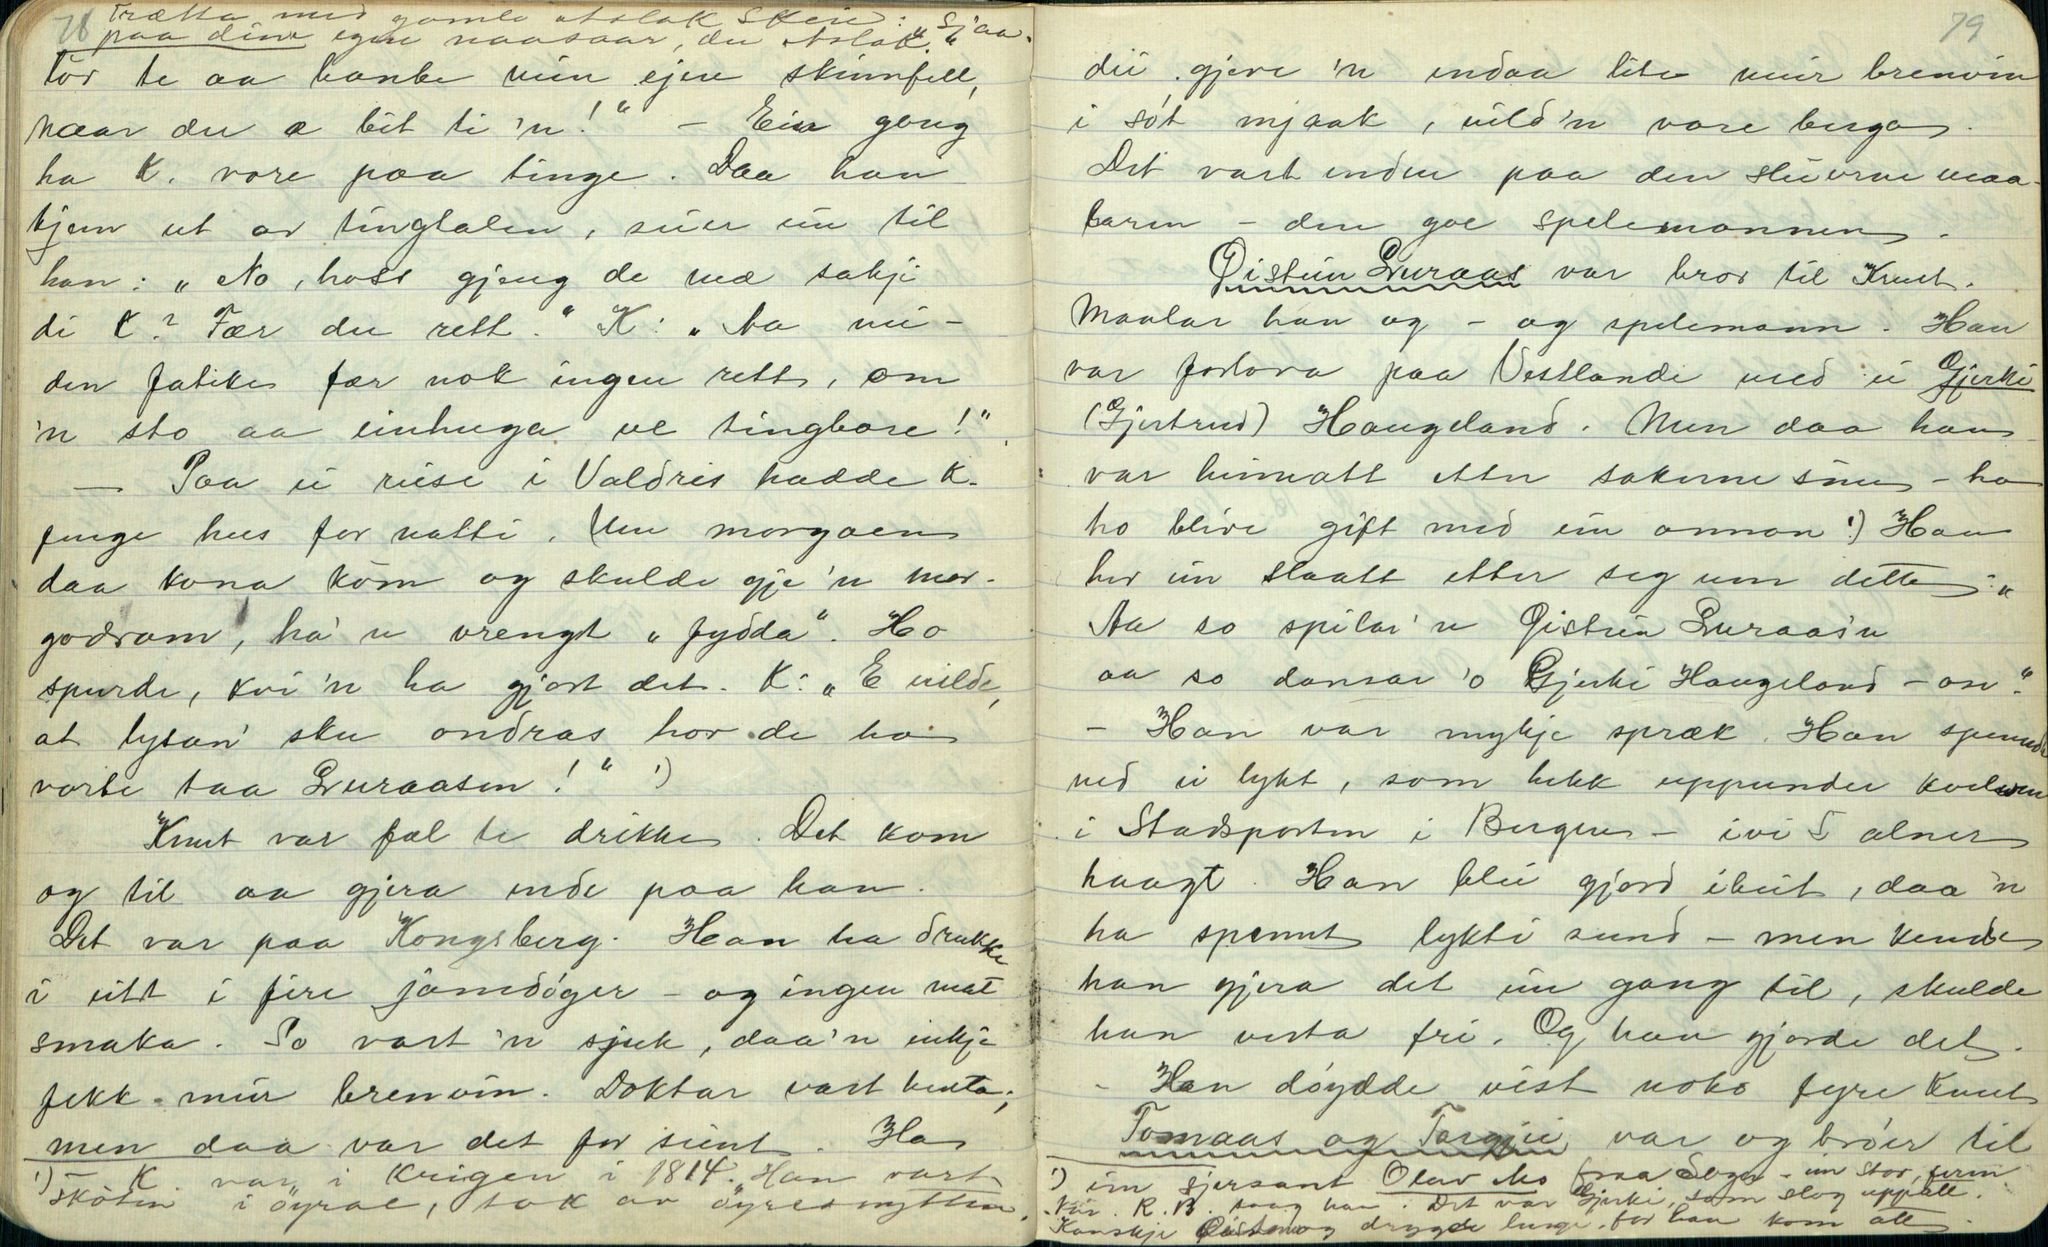 78
Trætta med gamle Aslak Skeie: "Sjaa
paa dine egne naasaar, du Aslak."
tor te aa banke min ejen skinnfell,
naar du a bit ti 'n!" – Ein gong
ha K. vore paa tinge. Daa han
kjem ut or tingtalen, sier ein til
han: "No, hoss gjeng de mæ sakji
di K? Fær du rett." K: "Aa nei –
den fatike fær nok ingen rett, om
'n sto aa einhuga ve tingbore!"
– Paa ei reise i Valdris hadde K.
finge hus for natti. Um morgoen
daa kona kom og skulde gje 'n mor-
godram, ha 'n vrengt "fydda". Ho
spurde, kvi 'n ha gjort det. K: "E vilde,
at lysan' sku ondras hor de ha
vorte taa Luraasen!" ¹)
Knut var fæl te drikke. Det kom
og til aa gjera ende paa han.
Det var paa Kongsberg. Han ha drukke
i eitt i fire jamdøger – og ingen mat
smaka. So vart 'n sjuk, daa 'n inkje
fekk meir brenvin. Doktar vart henta;
men daa var det for seint. Ha
¹) K. var i Krigen i 1814. Han vart
skoten i øyrae, tok av øyresnytten.
79
dei gjeve 'n endaa lite meir brenvin
i søt mjaak, vild 'n vore berga.
Det vart enden paa den sleivne maa-
laren – den goe spelemannen.
Øistein Luraas var bror til Knut.
Maalar han og – og spelemann. Han
var forlova paa Vestlande med ei Gjerki
(Gjertrud) Haugeland. Men daa han
var heimatt etter sakerne sine – ha
ho blive gift med ein annan ¹) Han
her ein slaatt etter seg um dette: "
Aa so spilar 'n Øistein Luraas'n
aa so dansar 'o Gjerki Haugeland – on".
– Han var mykje spræk. Han spende
ned ei lykt, som hekk uppunder kvelven
i Stadsporten i Bergen – ivi 5 alner
haagt. Han blei gjord ibeit, daa 'n
ha spent lykti sund – men kunde
han gjera det ein gang til, skulde
han verta fri. Og han gjorde det.
– Han døydde vist noko fyre Knut
Tomaas og Torgjei var og brøer til
¹) ein sjersant Olav Mo fraa Soger – ein stor, ferm
kar. R. B. saag han. Det var Gjerki, som slog uppatt.
Kanskje Øistein og drygde lenge, for han kom att.